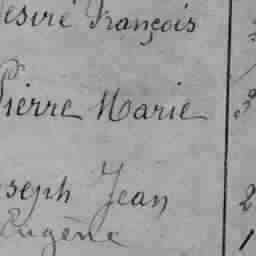 esiré François
Pierre Marie 3
oseph Jean 2
Eugène 1